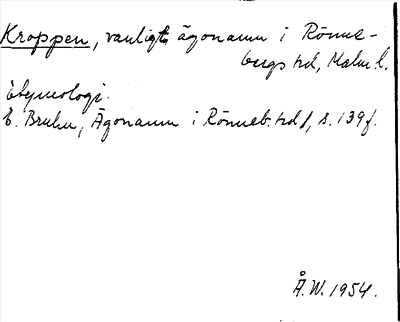 Kroppen, vanligt ägonamn i Rönne-
bergs hd, Malm l.
Etymologi.
E. Bruhn, Ägonamn i Rönneb. hd 1, s. 139 f.
Å.W. 1954.